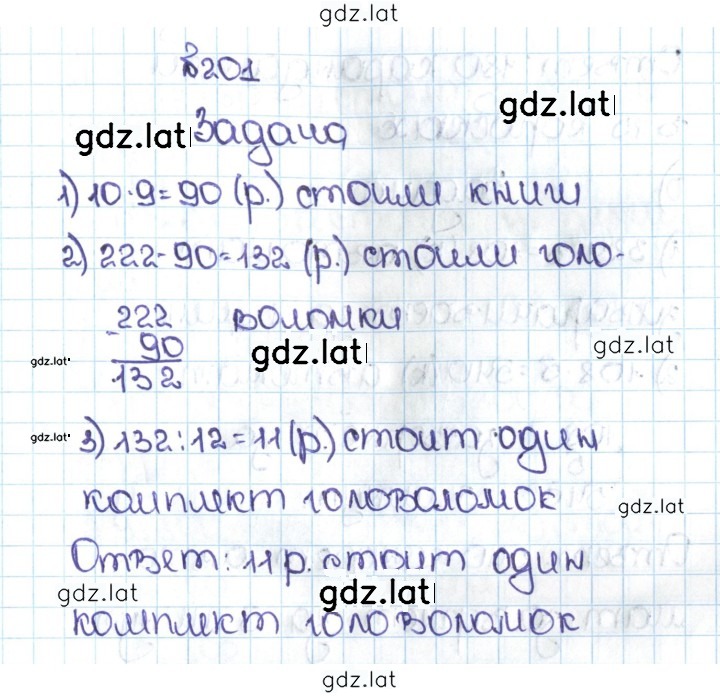 gdz.lat
№201
gdz.lat
gdz.lat Задача
1) 10·9=90 (р.) стоили книги
2) 222-90=132 (р.) стоили голо-
222 воломки
- 90 gdz.lat gdz.lat
gdz.lat 132
gdz.lat 3) 132:12=11 (р.) стоит один
комплект головоломок gdz.lat
Ответ: 11 р. стоит один
gdz.lat gdz.lat
комплект головоломок
gdz.lat